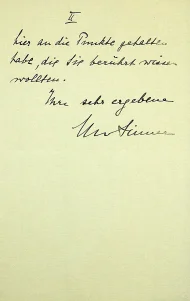 II
hier an die Punkte gehalten
habe, die Sie berührt wissen
wollten.
Ihre sehr ergebene